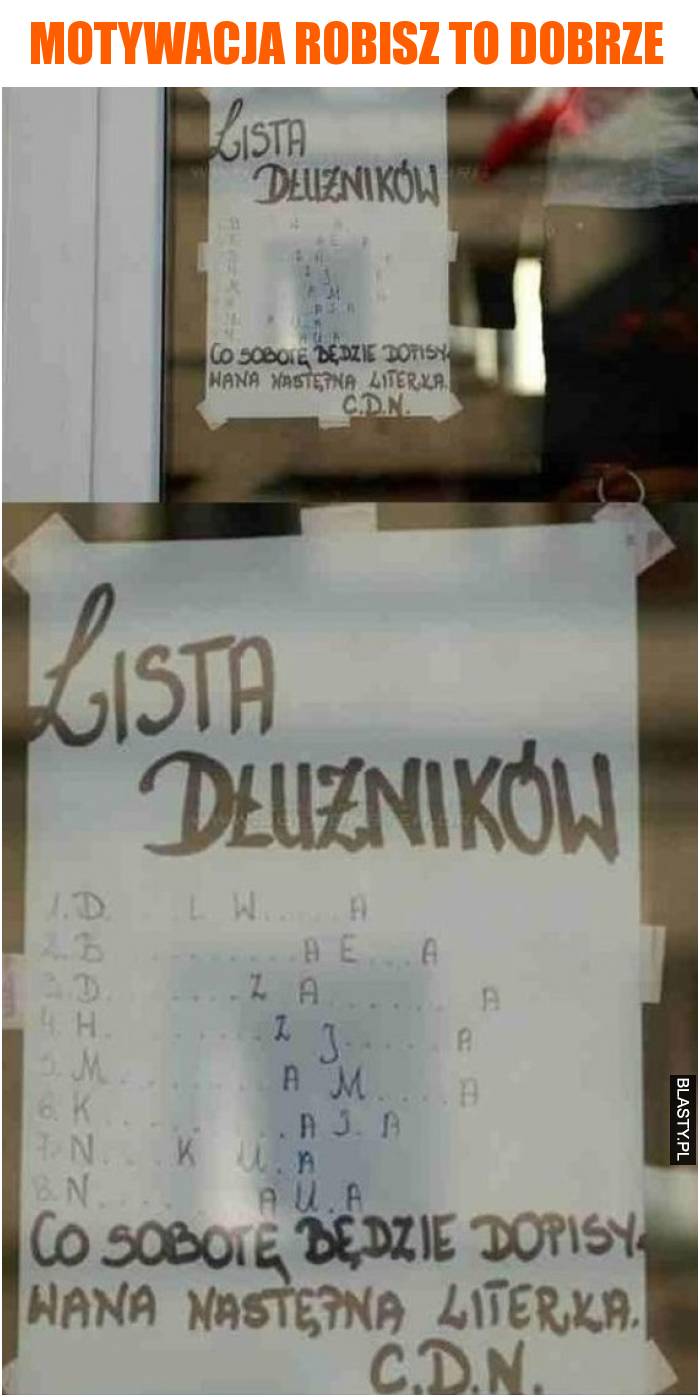 MOTYWACJA ROBISZ TO DOBRZE
LISTA
DŁUŻNIKÓW
CO SOBOTĘ BĘDZIE DOPISY-
WANA NASTĘPNA LITERKA.
C.D.N.
LISTA
DŁUŻNIKÓW
1. D. . . L W. . . . . A
2. B . . . . . . . . . . A E . . . A
3. D. . . . . . . . Z A . . . . . . . A
4. H. . . . . . . . . Z J. . . . . . A
5. M. . . . . . . . . A M. . . . A
6. K. . . . . . . . . . A J. A
7. N. . . . K U. A
8. N. . . . . . A U. A
CO SOBOTĘ BĘDZIE DOPISY-
WANA NASTĘPNA LITERKA.
C.D.N.
BLASTY.PL